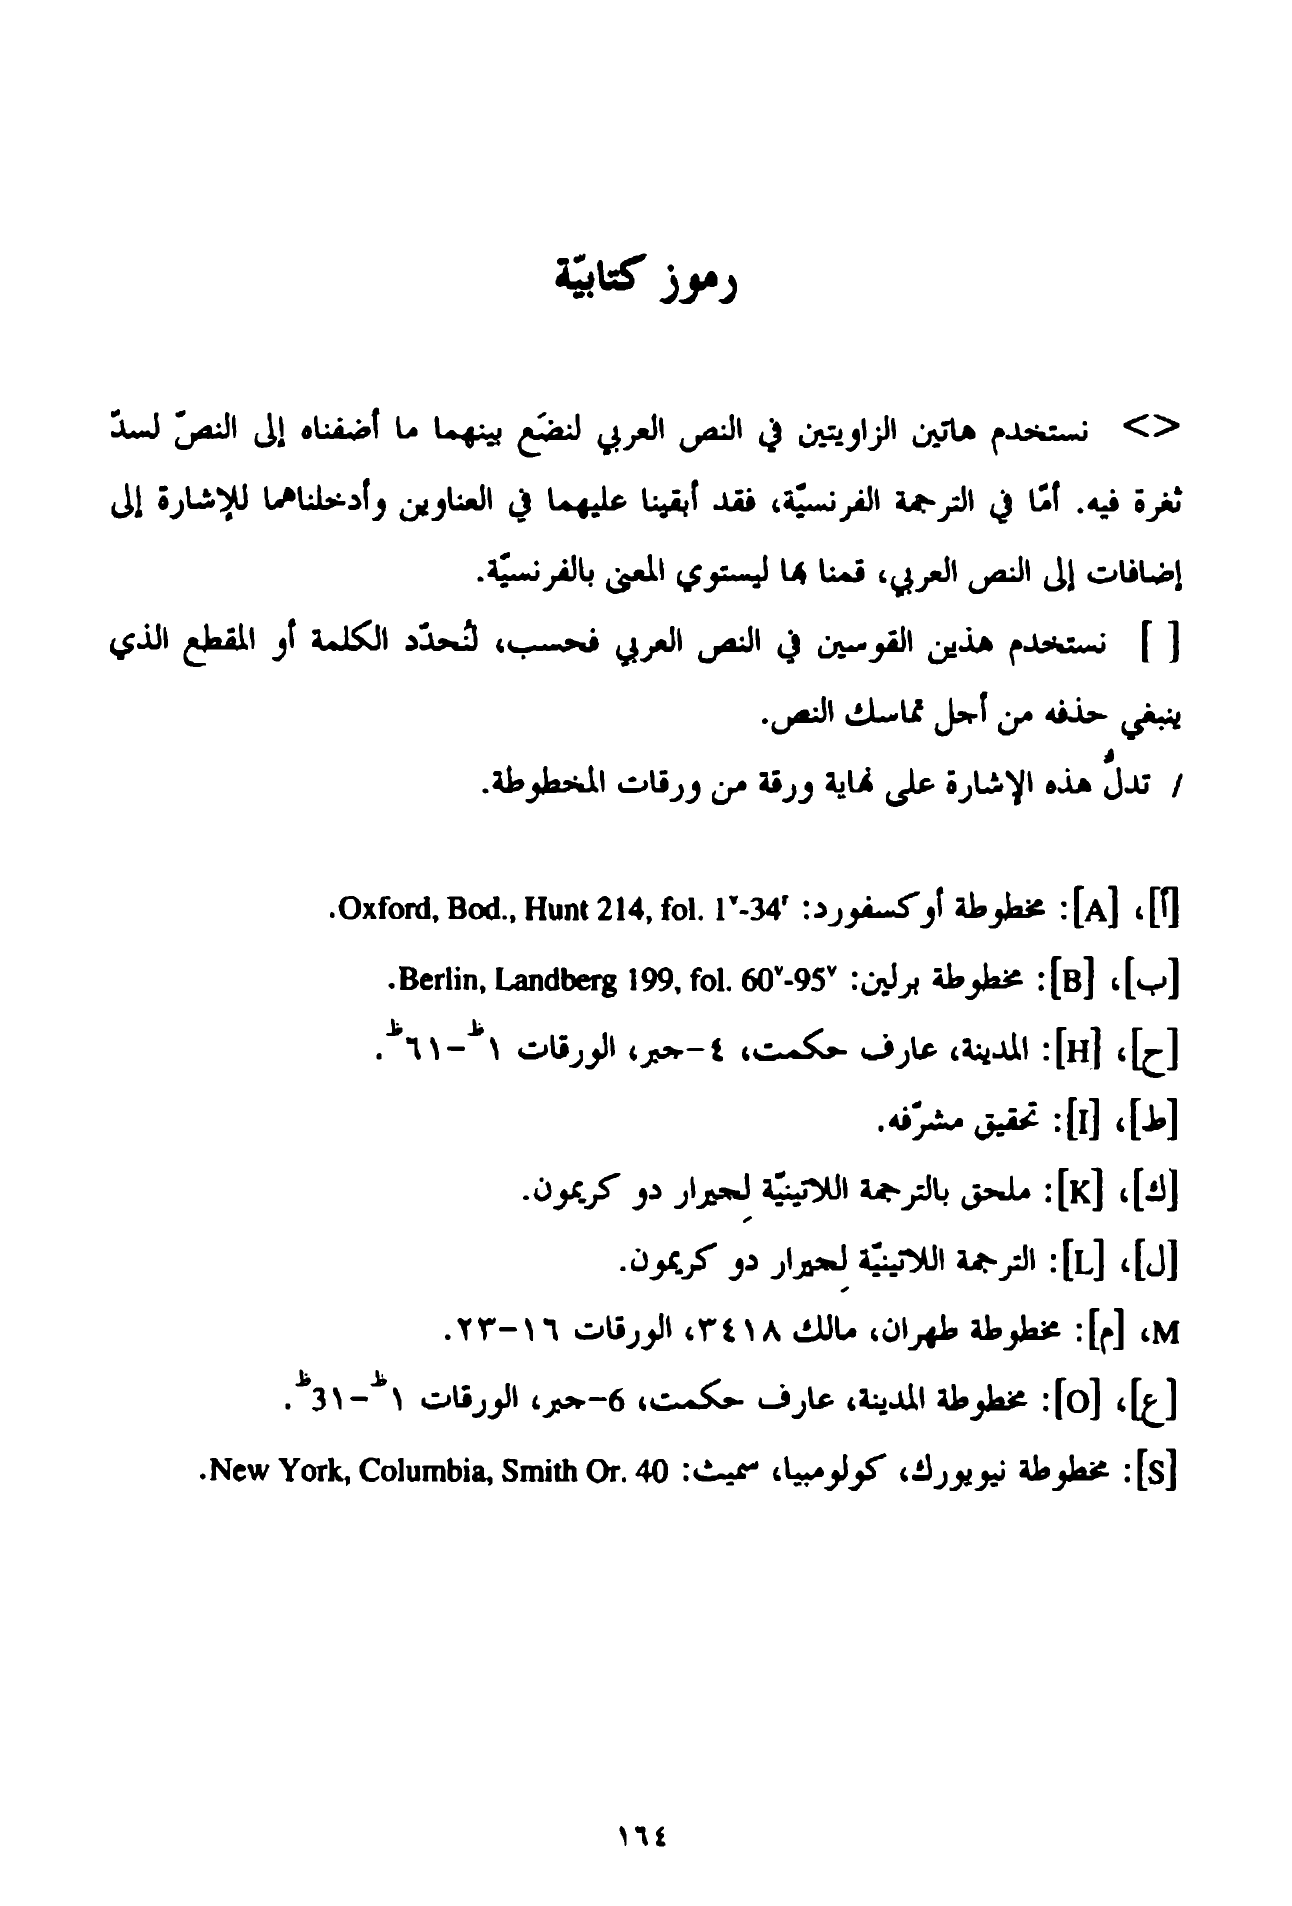 رموز كتابيّة
<> نستخدم هاتين الزاويتين في النص العربي لنضَع بينهما ما أضفناه إلى النصّ لسدّ
ثغرة فيه. أمّا في الترجمة الفرنسيّة، فقد أبقينا عليهما في العناوين وأدخلناهما للإشارة إلى
إضافات إلى النص العربي، قمنا بها ليستوي المعنى بالفرنسيّة.
[ ] نستخدم هذين القوسين في النص العربي فحسب، لنُحدّد الكلمة أو المقطع الذي
ينبغي حذفه من أجل تماسك النص.
/ تدلُّ هذه الإشارة على نهاية ورقة من ورقات المخطوطة.
[أ]، [A]: مخطوطة أوكسفورد: Oxford, Bod., Hunt 214, fol. 1ᵛ-34ʳ.
[ب]، [B]: مخطوطة برلين: Berlin, Landberg 199, fol. 60ᵛ-95ᵛ.
[ح]، [H]: المدينة، عارف حكمت، ٤-جبر، الورقات ١ظ-٦١ظ.
[ط]، [I]: تحقيق مشرّفه.
[ك]، [K]: ملحق بالترجمة اللاتينيّة لِجيرار دو كريمون.
[ل]، [L]: الترجمة اللاتينيّة لِجيرار دو كريمون.
M، [م]: مخطوطة طهران، مالك ٣٤١٨، الورقات ١٦-٢٣.
[ع]، [O]: مخطوطة المدينة، عارف حكمت، 6-جبر، الورقات ١ظ-٣1ظ.
[S]: مخطوطة نيويورك، كولومبيا، سميث: New York, Columbia, Smith Or. 40.
١٦٤